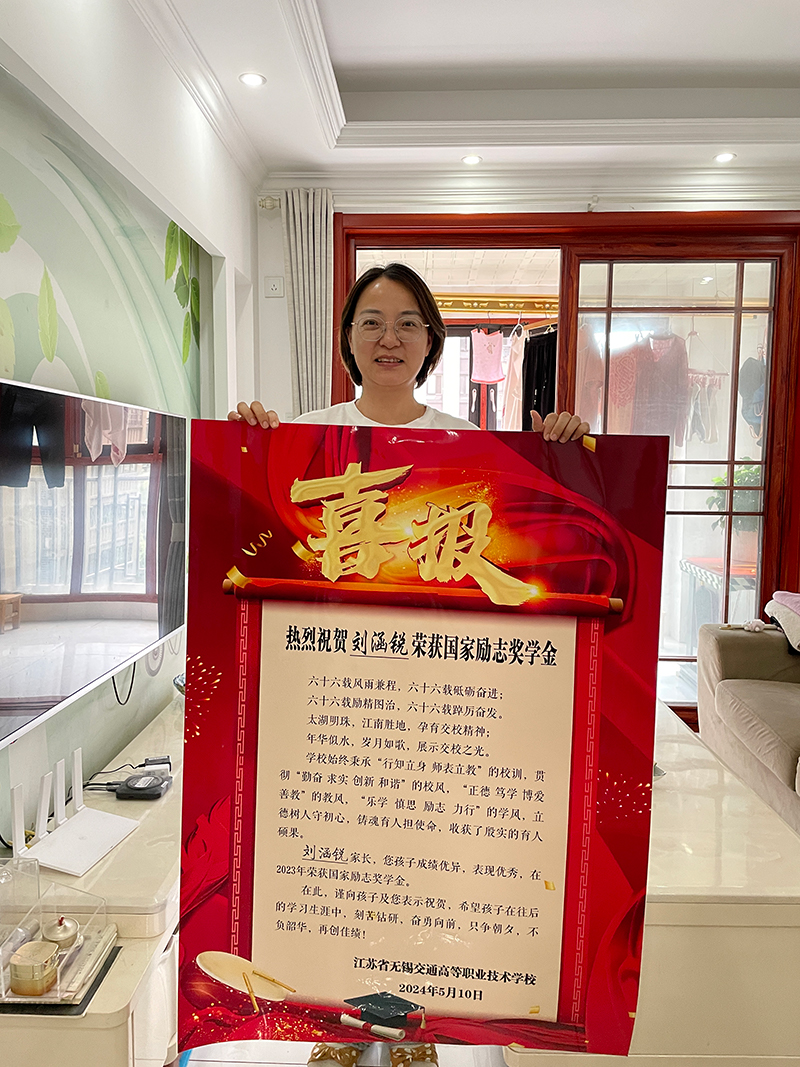 喜报
热烈祝贺刘涵锐荣获国家励志奖学金
六十六载风雨兼程，六十六载砥砺奋进；
六十六载励精图治，六十六载踔厉奋发。
太湖明珠，江南胜地，孕育交校精神；
年华似水，岁月如歌，展示交校之光。
学校始终秉承“行知立身 师表立教”的校训，贯
彻“勤奋 求实 创新 和谐”的校风，“正德 笃学 博爱
善教”的教风，“乐学 慎思 励志 力行”的学风，立
德树人守初心，铸魂育人担使命，收获了殷实的育人
硕果。
刘涵锐家长，您孩子成绩优异，表现优秀，在
2023年荣获国家励志奖学金。
在此，谨向孩子及您表示祝贺，希望孩子在往后
的学习生涯中，刻苦钻研、奋勇向前，只争朝夕，不
负韶华，再创佳绩！
江苏省无锡交通高等职业技术学校
2024年5月10日